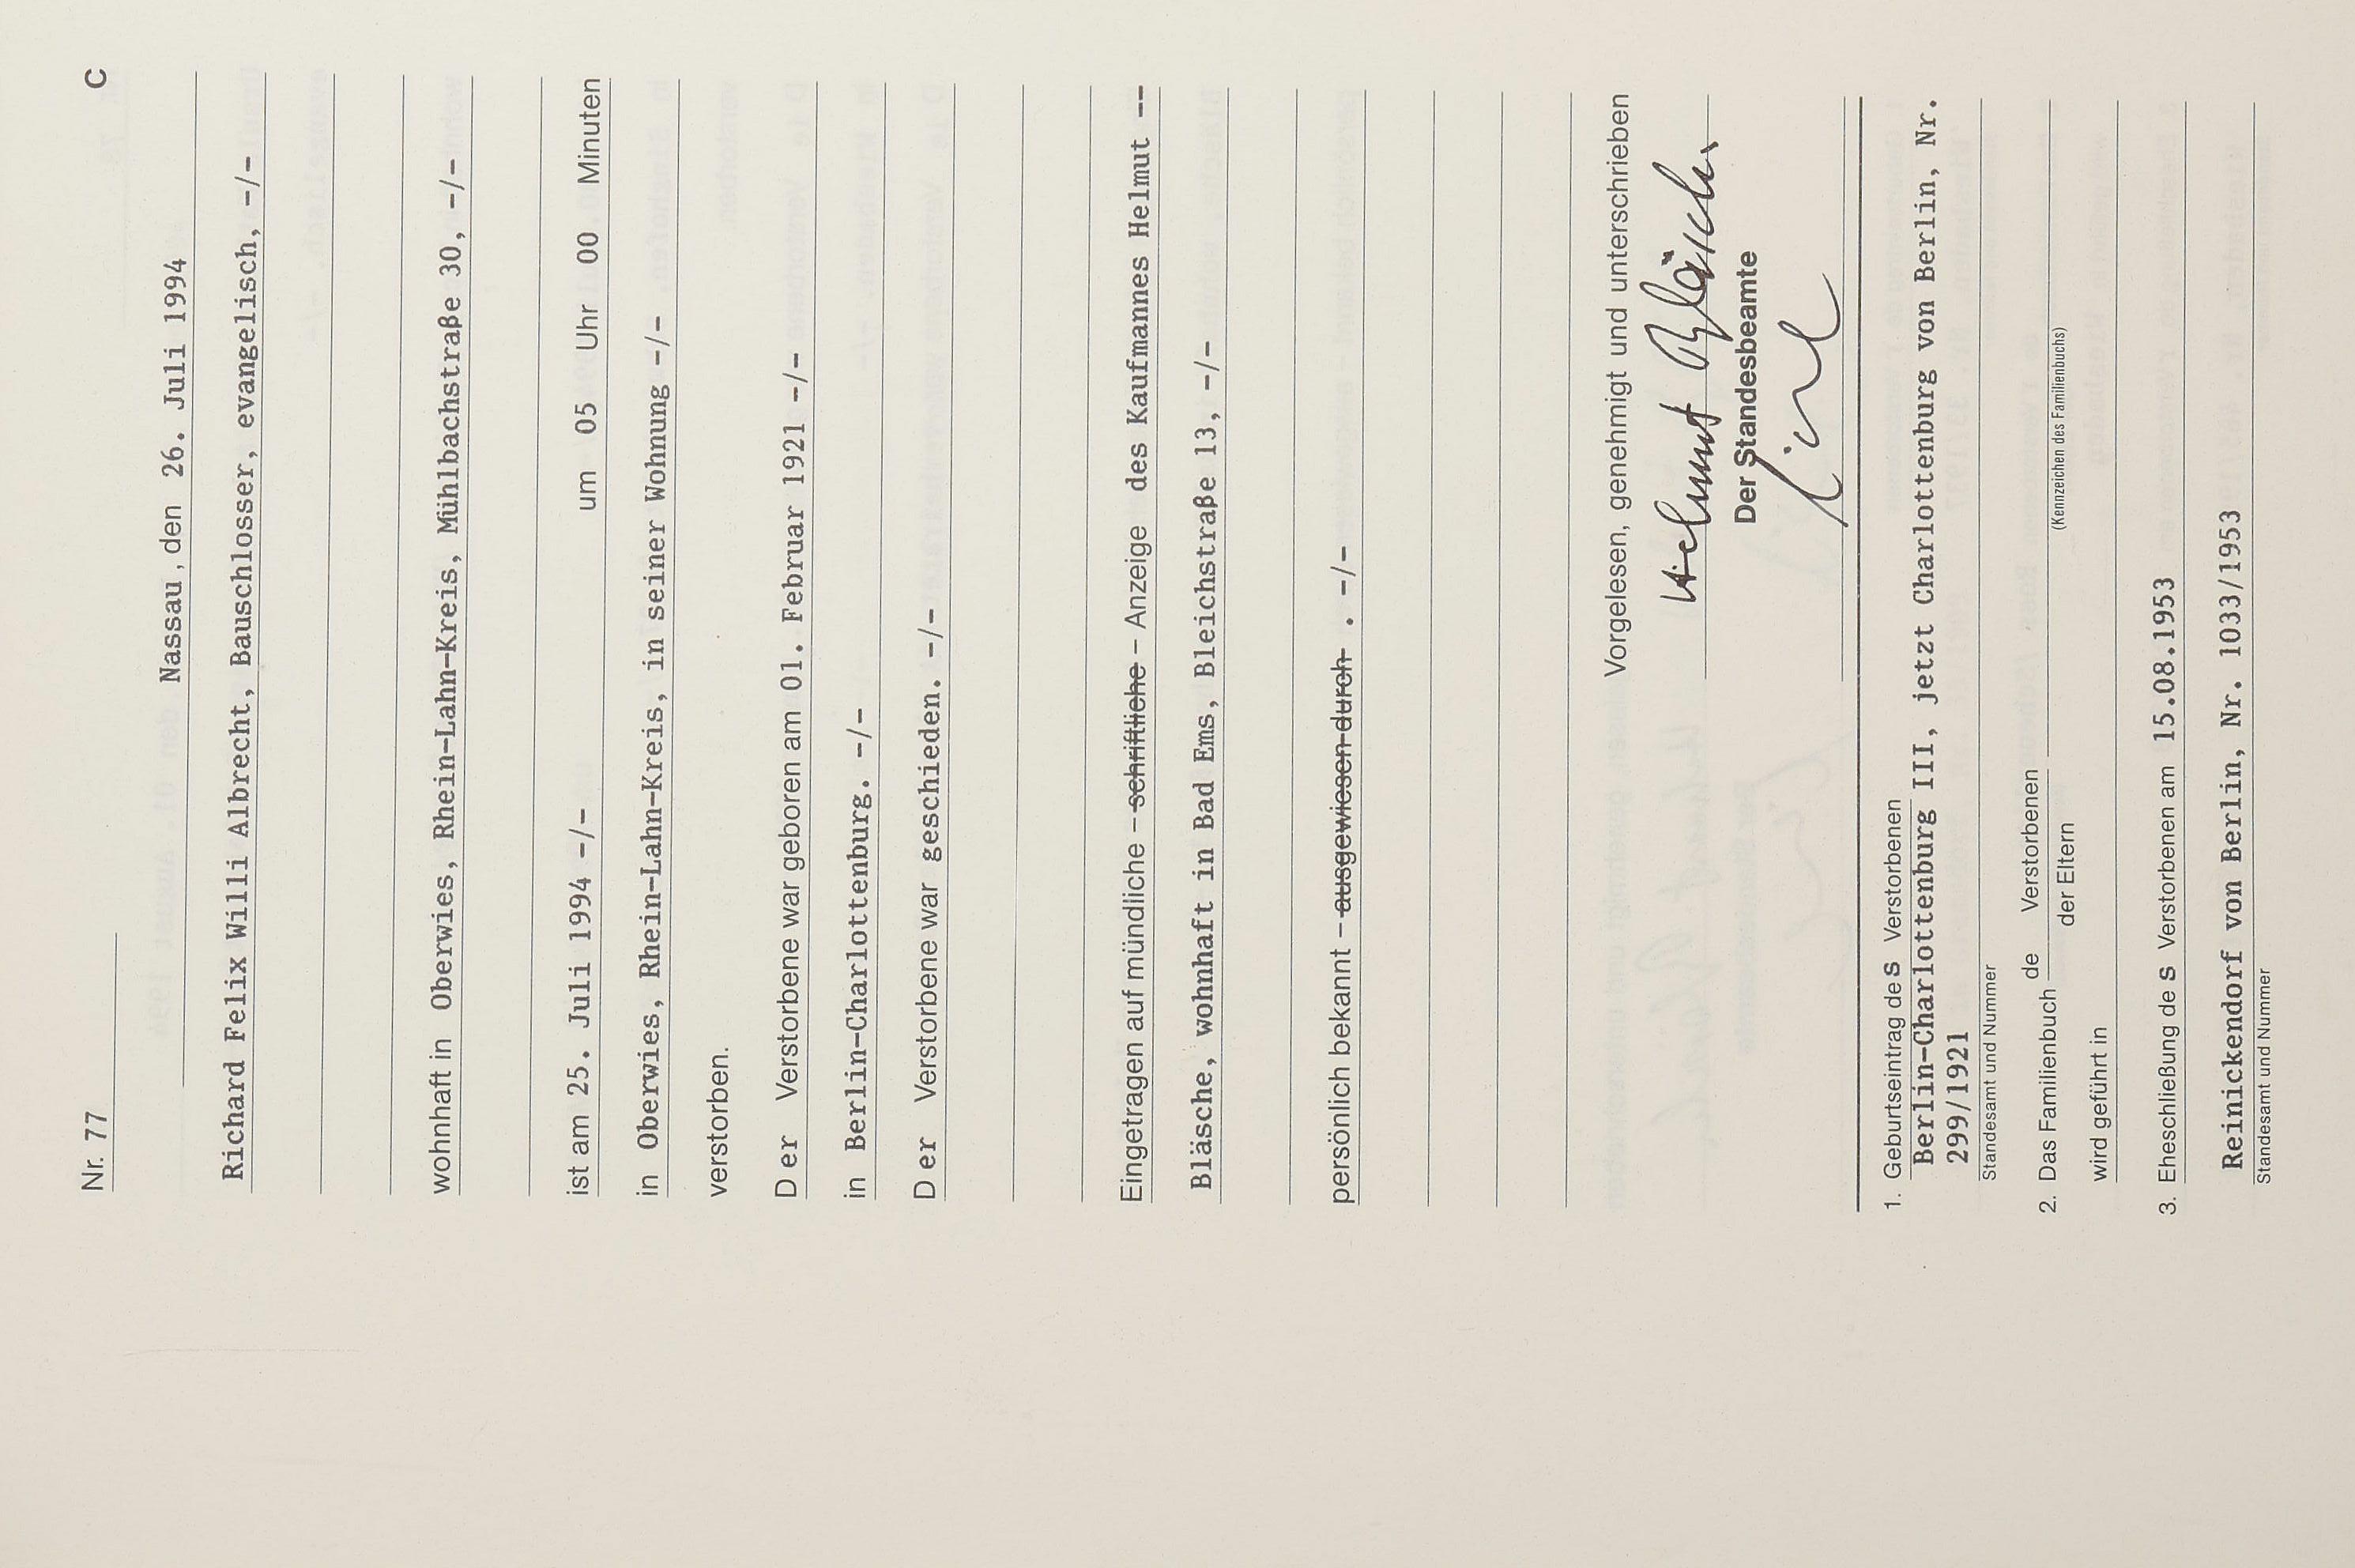 Nr. 77 C
Nassau, den 26. Juli 1994
Richard Felix Willi Albrecht, Bauschlosser, evangelisch, -/-
wohnhaft in Oberwies, Rhein-Lahn-Kreis, Mühlbachstraße 30, -/-
ist am 25. Juli 1994 -/- um 05 Uhr 00 Minuten
in Oberwies, Rhein-Lahn-Kreis, in seiner Wohnung -/-
verstorben.
D er Verstorbene war geboren am 01. Februar 1921 -/-
in Berlin-Charlottenburg. -/-
D er Verstorbene war geschieden. -/-
Eingetragen auf mündliche – schriftliche – Anzeige des Kaufmannes Helmut --
Bläsche, wohnhaft in Bad Ems, Bleichstraße 13, -/-
persönlich bekannt – ausgewiesen durch . -/-
Vorgelesen, genehmigt und unterschrieben
Helmut Bläsche
Der Standesbeamte
1. Geburtseintrag des Verstorbenen
Berlin-Charlottenburg III, jetzt Charlottenburg von Berlin, Nr.
299/1921
Standesamt und Nummer
2. Das Familienbuch de Verstorbenen
der Eltern
(Kennzeichen des Familienbuchs)
wird geführt in
3. Eheschließung de s Verstorbenen am 15.08.1953
Reinickendorf von Berlin, Nr. 1033/1953
Standesamt und Nummer